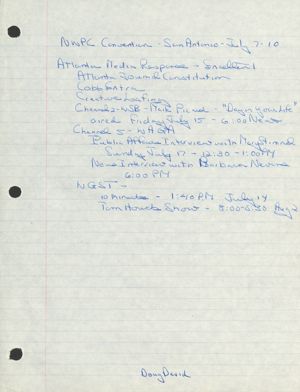 NWPC Convention - San Antonio - July 7-10
Atlanta Media Response - Excellent
Atlanta Journal Constitution
Cobb Extra
Creative Loafing
Channel 2 - WSB - Mark Picard - "Day in your Life"
aired Friday July 15 - 6:00 News
Channel 5 - WAGA
Public Affairs Interview with
Sunday July 17 - 12:30 - 1:00 PM
News Interview with Barbara Nevins
6:00 PM
WGST -
10 minutes - 1:40 PM July 14
Tom Houck Show - 5:00-5:30 Aug 2
Doug David